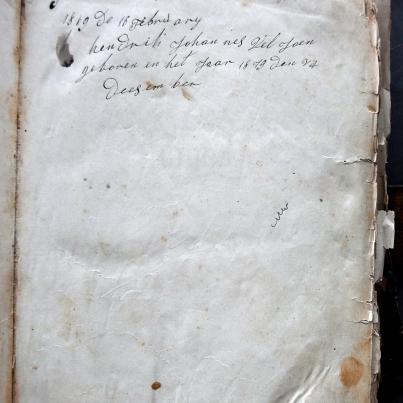 1819 De 16 febru ary
hendrik Johan nes
geboren en het Jaar 18 De n 24
Dees em ber